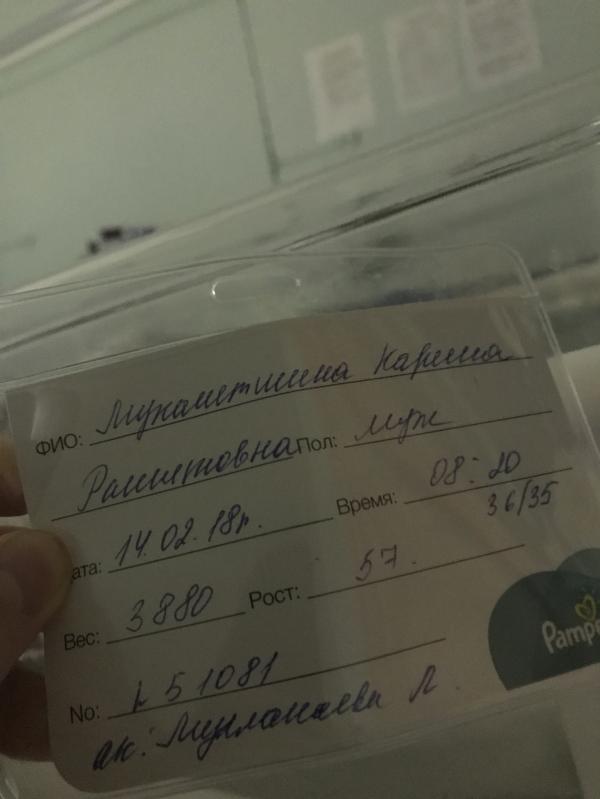 ФИО: Мухаметшина Карина
Рашитовна Пол: муж
ата: 14.02.18г. Время: 08:20
36/35
Вес: 3880 Рост: 57.
No: 51081
ак: Л.
Pampe